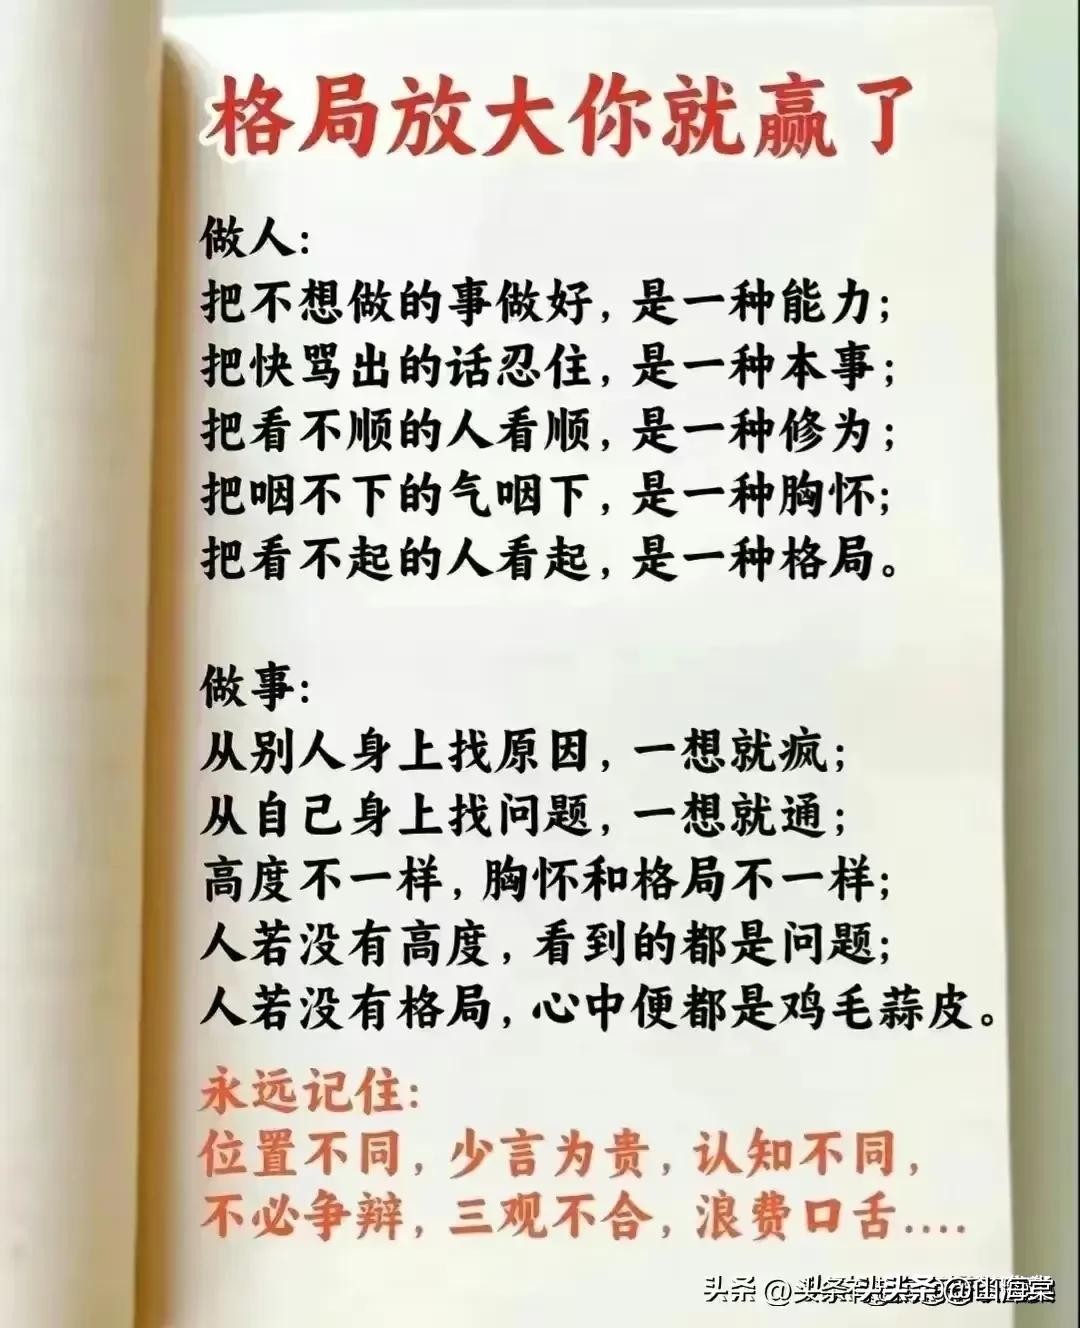 格局放大你就赢了
做人：
把不想做的事做好，是一种能力；
把快骂出的话忍住，是一种本事；
把看不顺的人看顺，是一种修为；
把咽不下的气咽下，是一种胸怀；
把看不起的人看起，是一种格局。
做事：
从别人身上找原因，一想就疯；
从自己身上找问题，一想就通；
高度不一样，胸怀和格局不一样；
人若没有高度，看到的都是问题；
人若没有格局，心中便都是鸡毛蒜皮。
永远记住：
位置不同，少言为贵，认知不同，
不必争辩，三观不合，浪费口舌....
头条 @
山海棠